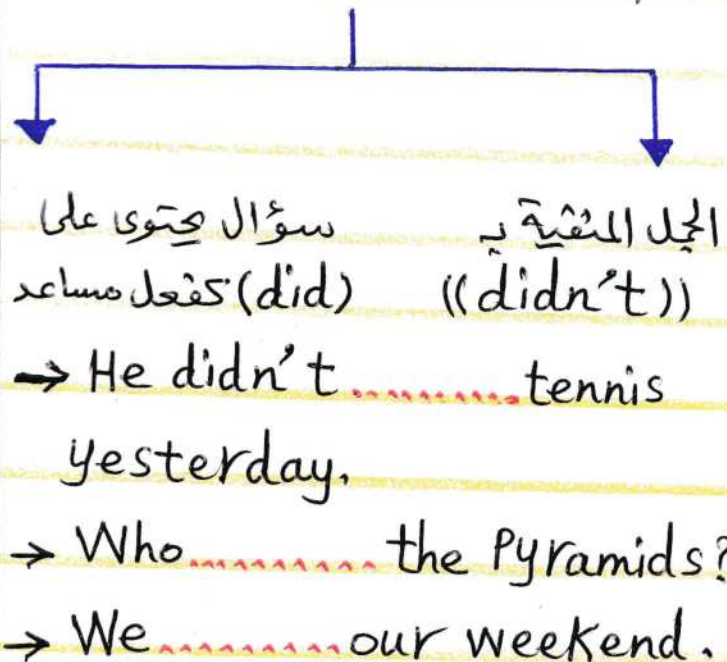 الجمل المنفية بـ
((didn't))
سؤال يحتوى على
(did) كفعل مساعد
→ He didn't ......... tennis
yesterday.
→ Who ......... the Pyramids?
→ We ......... our weekend.